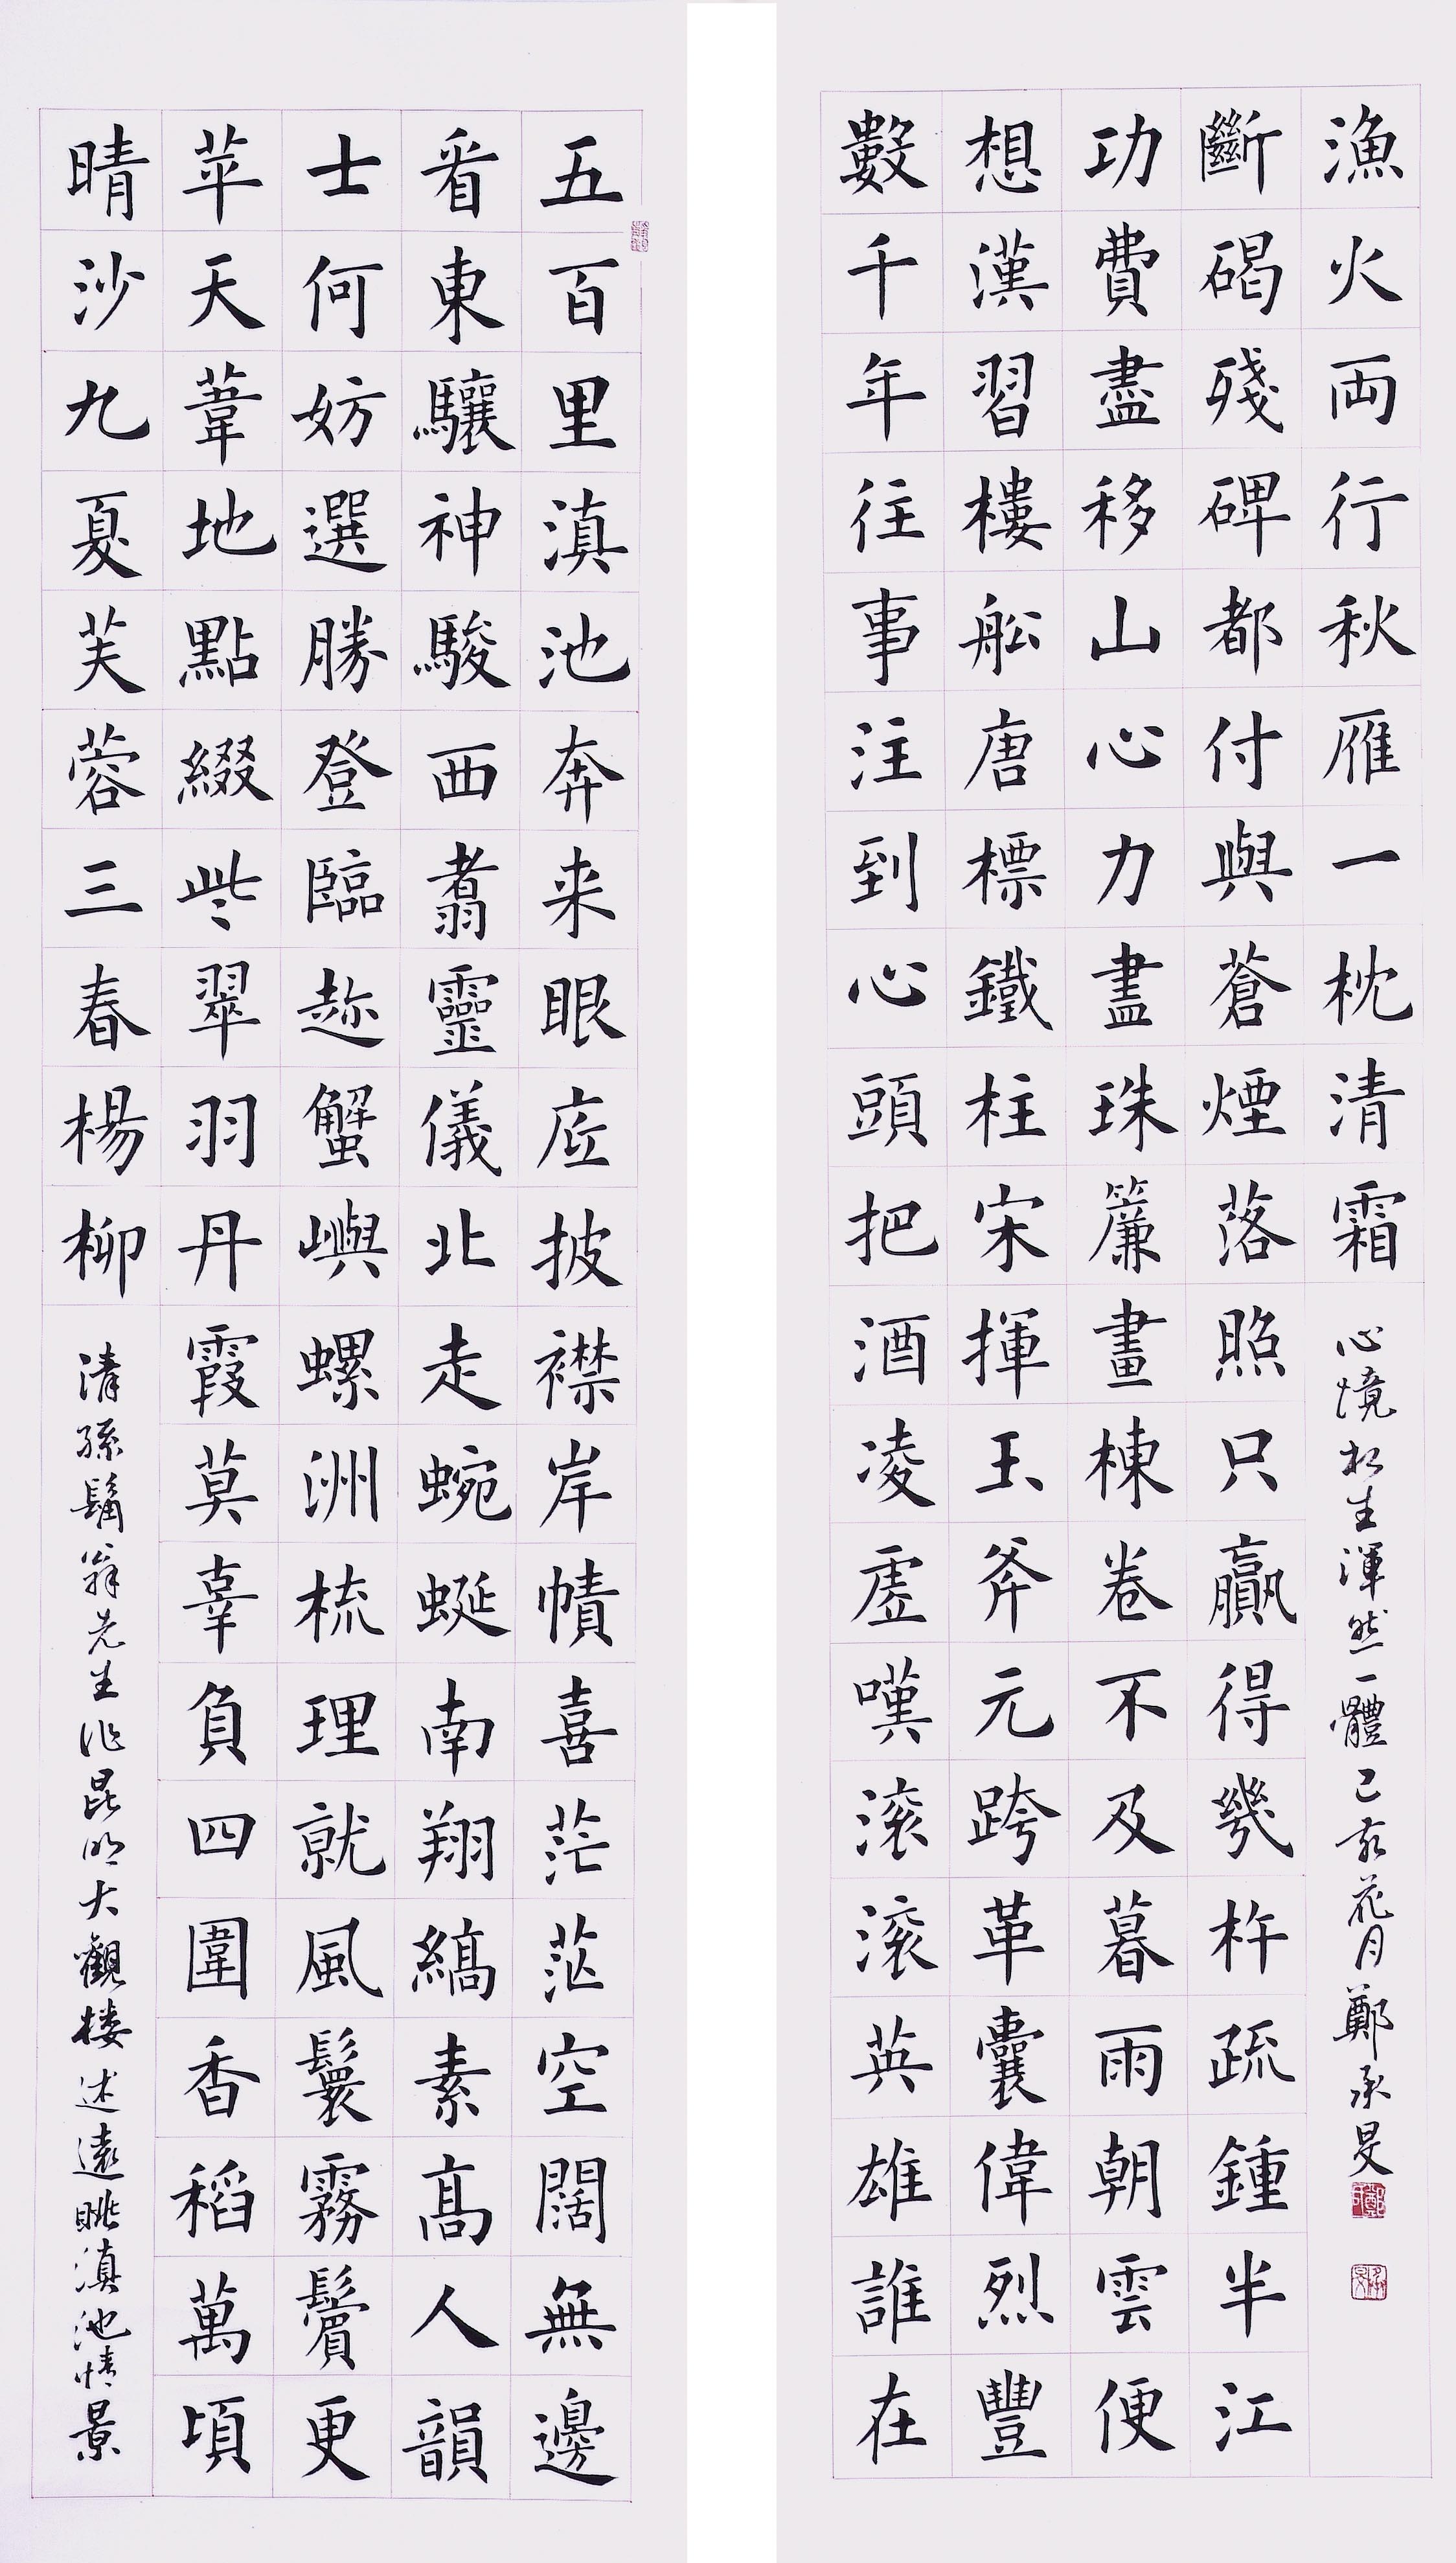 五百里滇池奔来眼底披襟岸幘喜茫茫空闊無邊
看東驤神駿西翥靈儀北走蜿蜒南翔縞素高人韻
士何妨選勝登臨趂蟹嶼螺洲梳理就風鬟霧鬢更
苹天葦地點綴些翠羽丹霞莫辜負四圍香稻萬頃
晴沙九夏芙蓉三春楊柳
清孫髯翁先生作昆明大觀楼述遠眺滇池情景
數千年往事注到心頭把酒凌虛嘆滚滚英雄誰在
想漢習樓船唐標鐵柱宋揮玉斧元跨革囊偉烈豐
功費盡移山心力盡珠簾畫棟卷不及暮雨朝雲便
斷碣殘碑都付與蒼煙落照只贏得幾杵疏鍾半江
漁火両行秋雁一枕清霜
心境生渾然一體己亥花月鄭承旻